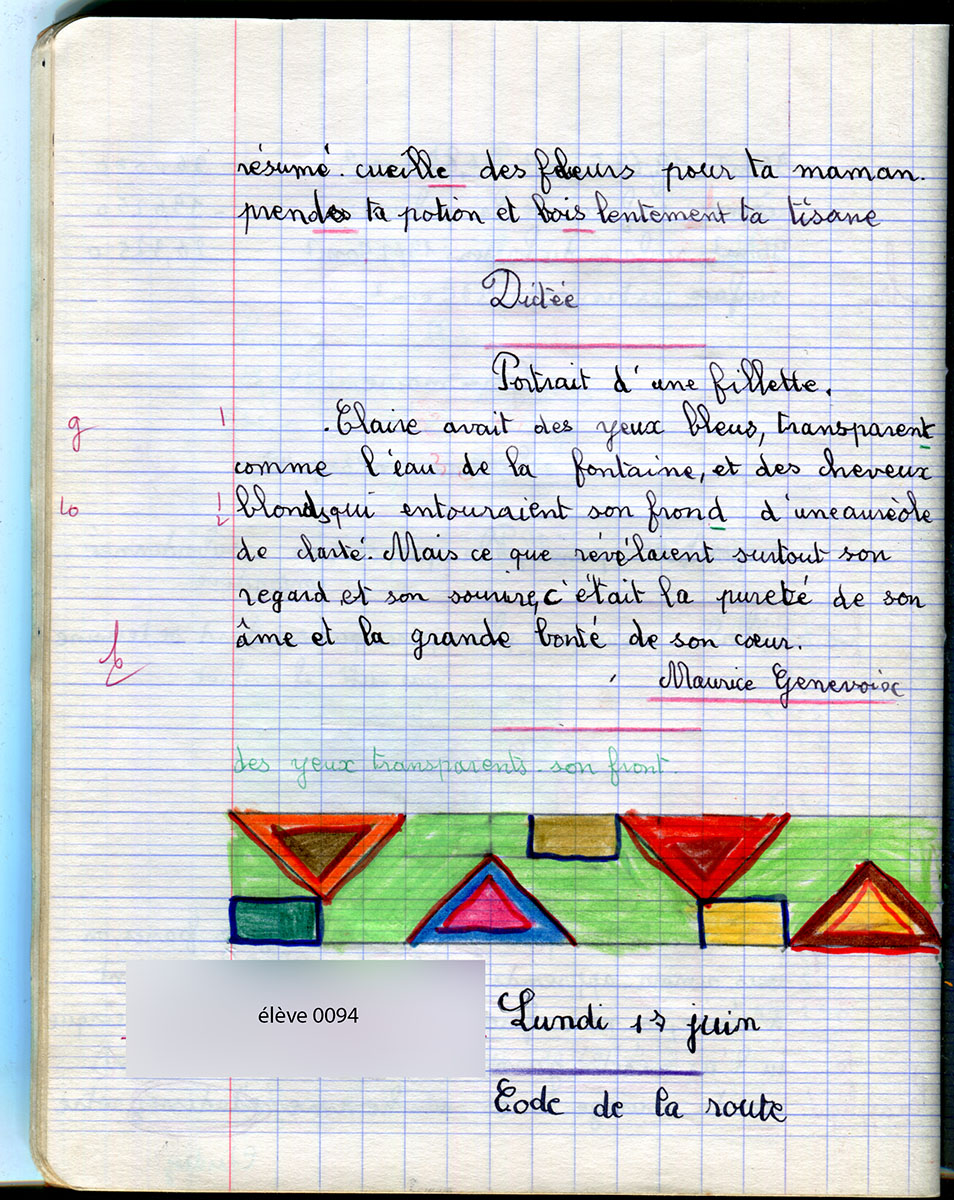 résumé. cueille des fleurs pour ta maman.
prends ta potion et bois lentement ta tisane
Dictée
Portrait d'une fillette.
g 1 .Claire avait des yeux bleus, transparent
comme l'eau de la fontaine, et des cheveux
10 1 blonds qui entouraient son frond d'une auréole
2
de clarté. Mais ce que révélaient surtout son
regard et son sourire, c'était la pureté de son
âme et la grande bonté de son cœur.
b
Maurice Genevoix
des yeux transparents. son front
élève 0094
Lundi 17 juin
Code de la route